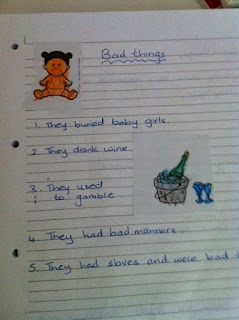 Bad things
1. They buried baby girls.
2. They drank wine.
3. They used
to gamble
4. They had bad manners.
5. They had slaves and were bad